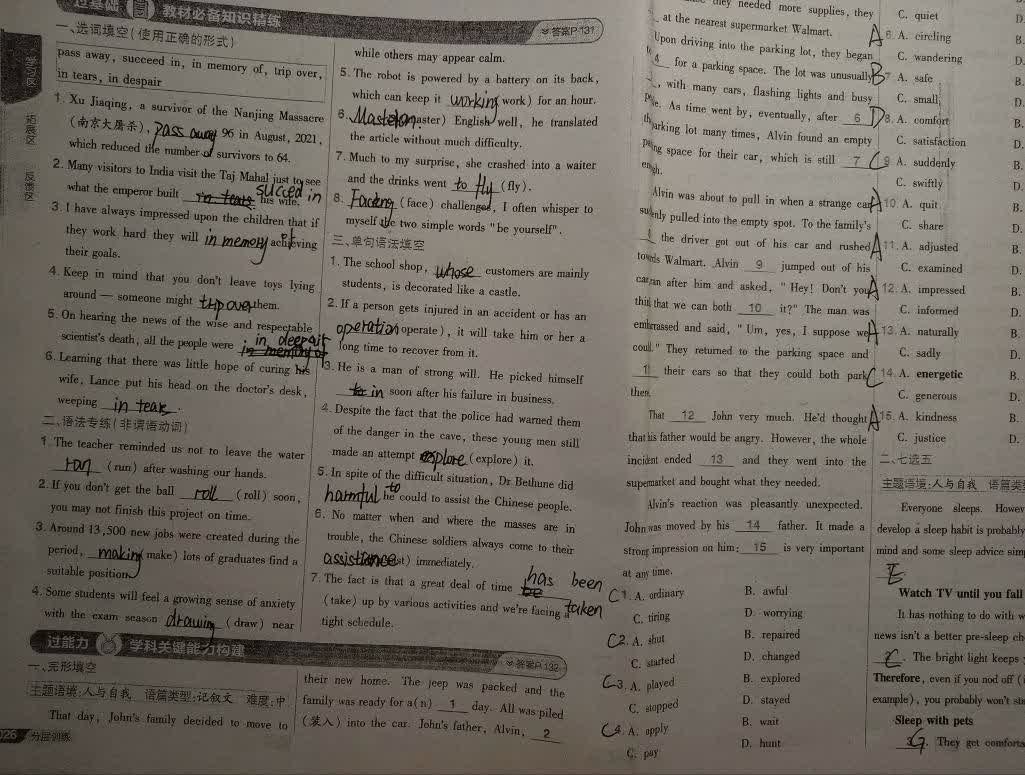 过基础 教材必备知识精练
答案P.131
一、选词填空(使用正确的形式)
pass away, succeed in, in memory of, trip over,
in tears, in despair
1. Xu Jiaqing, a survivor of the Nanjing Massacre
(南京大屠杀), pass away 96 in August, 2021,
which reduced the number of survivors to 64.
2. Many visitors to India visit the Taj Mahal just to see
what the emperor built in tears succed in his wife.
3. I have always impressed upon the children that if
they work hard they will in memory achieving
their goals.
4. Keep in mind that you don't leave toys lying
around — someone might trip over them.
5. On hearing the news of the wise and respectable
scientist's death, all the people were in memory of in despair
6. Learning that there was little hope of curing his
wife, Lance put his head on the doctor's desk,
weeping in tears.
二、语法专练(非谓语动词)
1. The teacher reminded us not to leave the water
ran (run) after washing our hands.
2. If you don't get the ball roll (roll) soon,
you may not finish this project on time.
3. Around 13,500 new jobs were created during the
period, making make) lots of graduates find a
suitable position.
4. Some students will feel a growing sense of anxiety
with the exam season drawing (draw) near
while others may appear calm.
5. The robot is powered by a battery on its back,
which can keep it working work) for an hour.
6. aster) English well, he translated
the article without much difficulty.
7. Much to my surprise, she crashed into a waiter
and the drinks went to fly (fly).
8. Facing (face) challenged, I often whisper to
myself the two simple words "be yourself".
三、单句语法填空
1. The school shop, whose customers are mainly
students, is decorated like a castle.
2. If a person gets injured in an accident or has an
operation operate), it will take him or her a
long time to recover from it.
3. He is a man of strong will. He picked himself
in soon after his failure in business.
4. Despite the fact that the police had warned them
of the danger in the cave, these young men still
made an attempt explore (explore) it.
5. In spite of the difficult situation, Dr. Bethune did
harmful to he could to assist the Chinese people.
6. No matter when and where the masses are in
trouble, the Chinese soldiers always come to their
assistance st) immediately.
7. The fact is that a great deal of time be has been
(take) up by various activities and we're facing a taken
tight schedule.
过能力 学科关键能力构建
答案P.132
一、完形填空
主题语境:人与自我 语篇类型:记叙文 难度:中
That day, John's family decided to move to
026 分层训练
their new home. The jeep was packed and the
family was ready for a(n) 1 day. All was piled
(装入) into the car. John's father, Alvin, 2
they needed more supplies, they
at the nearest supermarket Walmart.
Upon driving into the parking lot, they began
4 for a parking space. The lot was unusually
, with many cars, flashing lights and busy
. As time went by, eventually, after 6
parking lot many times, Alvin found an empty
parking space for their car, which is still 7
enough.
Alvin was about to pull in when a strange car
suddenly pulled into the empty spot. To the family's
the driver got out of his car and rushed
towards Walmart. Alvin 9 jumped out of his
car, ran after him and asked, "Hey! Don't you
think that we can both 10 it?" The man was
embarrassed and said, "Um, yes, I suppose we
could." They returned to the parking space and
11 their cars so that they could both park
then.
That 12 John very much. He'd thought
that his father would be angry. However, the whole
incident ended 13 and they went into the
supermarket and bought what they needed.
Alvin's reaction was pleasantly unexpected.
John was moved by his 14 father. It made a
strong impression on him: 15 is very important
at any time.
C 1. A. ordinary B. awful
C. tiring D. worrying
C 2. A. shut B. repaired
C. started D. changed
C 3. A. played B. explored
C. stopped D. stayed
C 4. A. apply B. wait
C. pay D. hunt
C. quiet D.
A 6. A. circling B.
C. wandering D.
B 7. A. safe B.
C. small D.
D 8. A. comfort B.
C. satisfaction D.
C 9. A. suddenly B.
C. swiftly D.
A 10. A. quit B.
C. share D.
A 11. A. adjusted B.
C. examined D.
A 12. A. impressed B.
C. informed D.
A 13. A. naturally B.
C. sadly D.
C 14. A. energetic B.
C. generous D.
A 15. A. kindness B.
C. justice D.
二、七选五
主题语境:人与自我 语篇类
Everyone sleeps. Howev
develop a sleep habit is probably
mind and some sleep advice sim
E
Watch TV until you fall
It has nothing to do with w
news isn't a better pre-sleep ch
C. The bright light keeps
Therefore, even if you nod off (
example), you probably won't sta
Sleep with pets
G. They get comforts
学习区
拓展区
反馈区